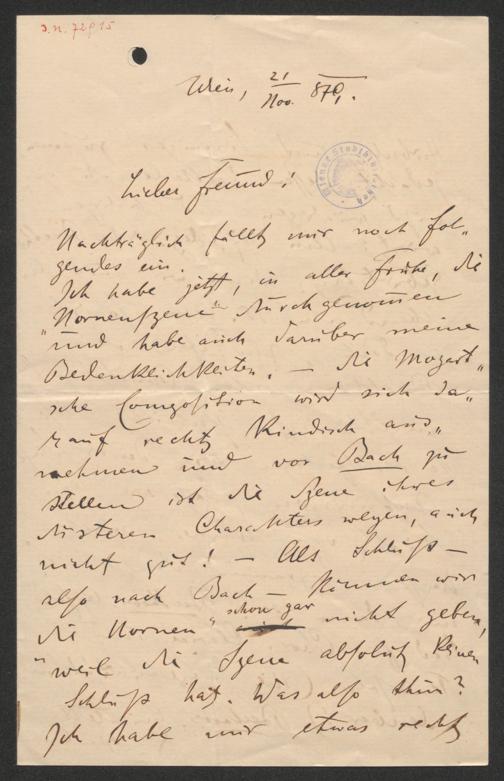 J.N. 72915
Wien, 21/Nov. 879.
Wiener Stadtbibliothek
Lieber Freund!
Nachträglich fällt mir noch fol„
gendes ein.
Ich habe jetzt, in aller Frühe, die
„Nornenszene" durchgenommen
und habe auch darüber meine
Bedenklichkeiten. – die Mozart„
sche Composition wird sich da„
rauf recht kindisch aus„
nehmen und vor Bach zu
stellen ist die Szene ihres
düsteren Charakters wegen, auch
nicht gut! – Als Schluß –
also nach Bach – können wir
die Nornen" schon gar nicht geben,
weil die Szene absolut keinen
Schluß hat. Was also thun?
Ich habe mir etwas recht